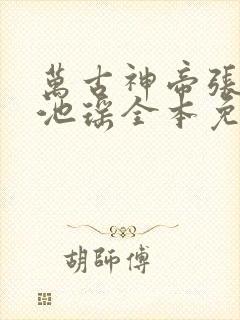 萬古神帝張
池瑤全本免
胡師傅